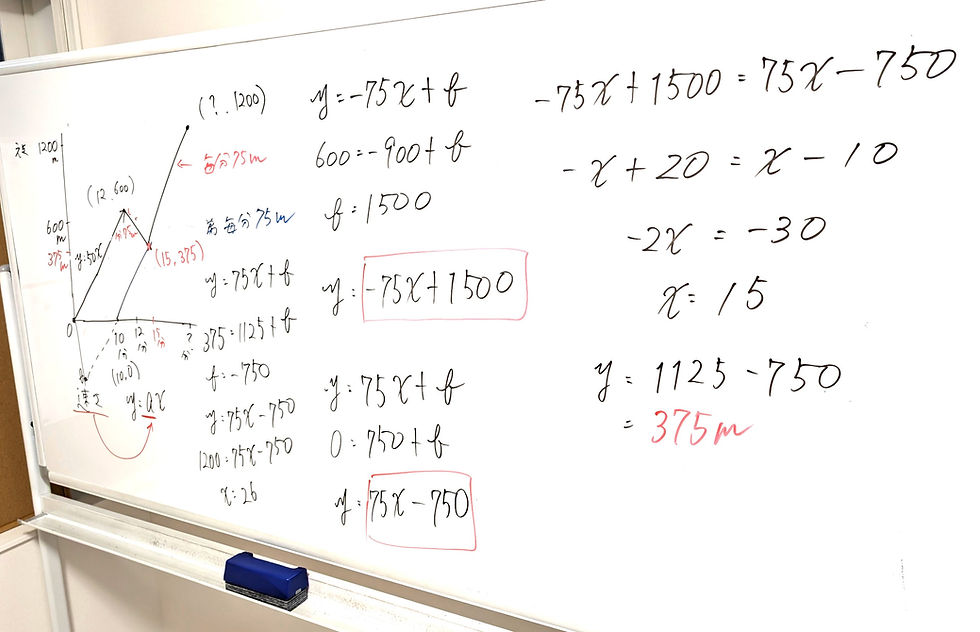 (?, 1200)
1200
m
毎分75m
(12, 600)
600
m
375
m
y=50x
(15, 375)
0
10
分
12
分
15
分
?
分
(10, 0)
速さ
y=ax
弟 毎分75m
y=75x+b
375=1125+b
b=-750
y=75x-750
1200=75x-750
x=26
y=-75x+b
600=-900+b
b=1500
y=-75x+1500
y=75x+b
0=750+b
y=75x-750
-75x+1500=75x-750
-x+20=x-10
-2x=-30
x=15
y=1125-750
=375m